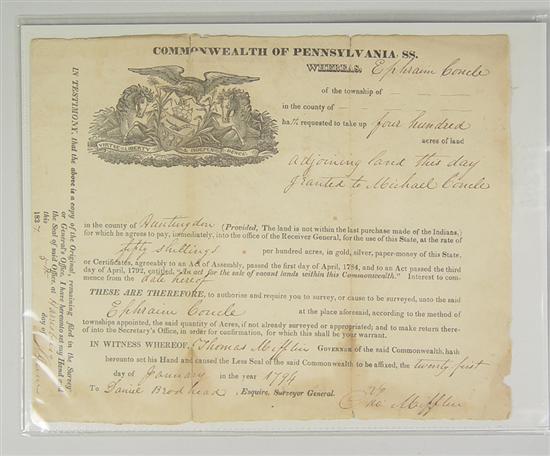 COMMONWEALTH OF PENNSYLVANIA, SS.
WHEREAS, Ephraim Concle
of the township of
in the county of
hath requested to take up four hundred
acres of land
adjoining land this day
granted to Michael Concle
VIRTUE LIBERTY & INDEPENDENCE
in the county of Huntingdon (Provided, The land is not within the last purchase made of the Indians,)
for which he agrees to pay, immediately, into the office of the Receiver General, for the use of this State, at the rate of
fifty shillings per hundred acres, in gold, silver, paper-money of this State,
or Certificates, agreeably to an Act of Assembly, passed the first day of April, 1784, and to an Act passed the third
day of April, 1792, entitled, "An act for the sale of vacant lands within this Commonwealth." Interest to com-
mence from the date hereof
THESE ARE THEREFORE, to authorise and require you to survey, or cause to be surveyed, unto the said
Ephraim Concle at the place aforesaid, according to the method of
townships appointed, the said quantity of Acres, if not already surveyed or appropriated; and to make return there-
of into the Secretary's Office, in order for confirmation, for which this shall be your warrant.
IN WITNESS WHEREOF, Thomas Mifflin GOVERNOR of the said Commonwealth, hath
hereunto set his Hand and caused the Less Seal of the said Commonwealth to be affixed, the twenty first
day of January in the year 1794
To Daniel Brodhead, Esquire, Surveyor General.
Tho Mifflin
IN TESTIMONY, that the above is a copy of the Original, remaining filed in the Survey-
or General's Office, I have hereunto set my Hand and
the Seal of said Office, at Harrisburg
this day of
1837